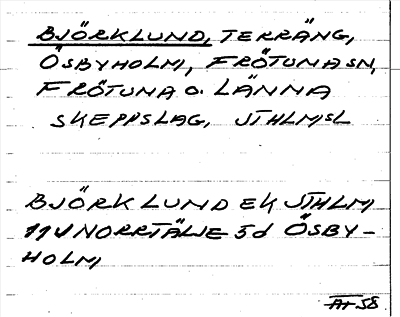 BJÖRKLUND, TERRÄNG,
ÖSBYHOLM, FRÖTUNA SN,
FRÖTUNA O. LÄNNA
SKEPPSLAG, STHLMSL
BJÖRKLUND EK STHLM
11V NORRTÄLJE 5d ÖSBY-
HOLM
58